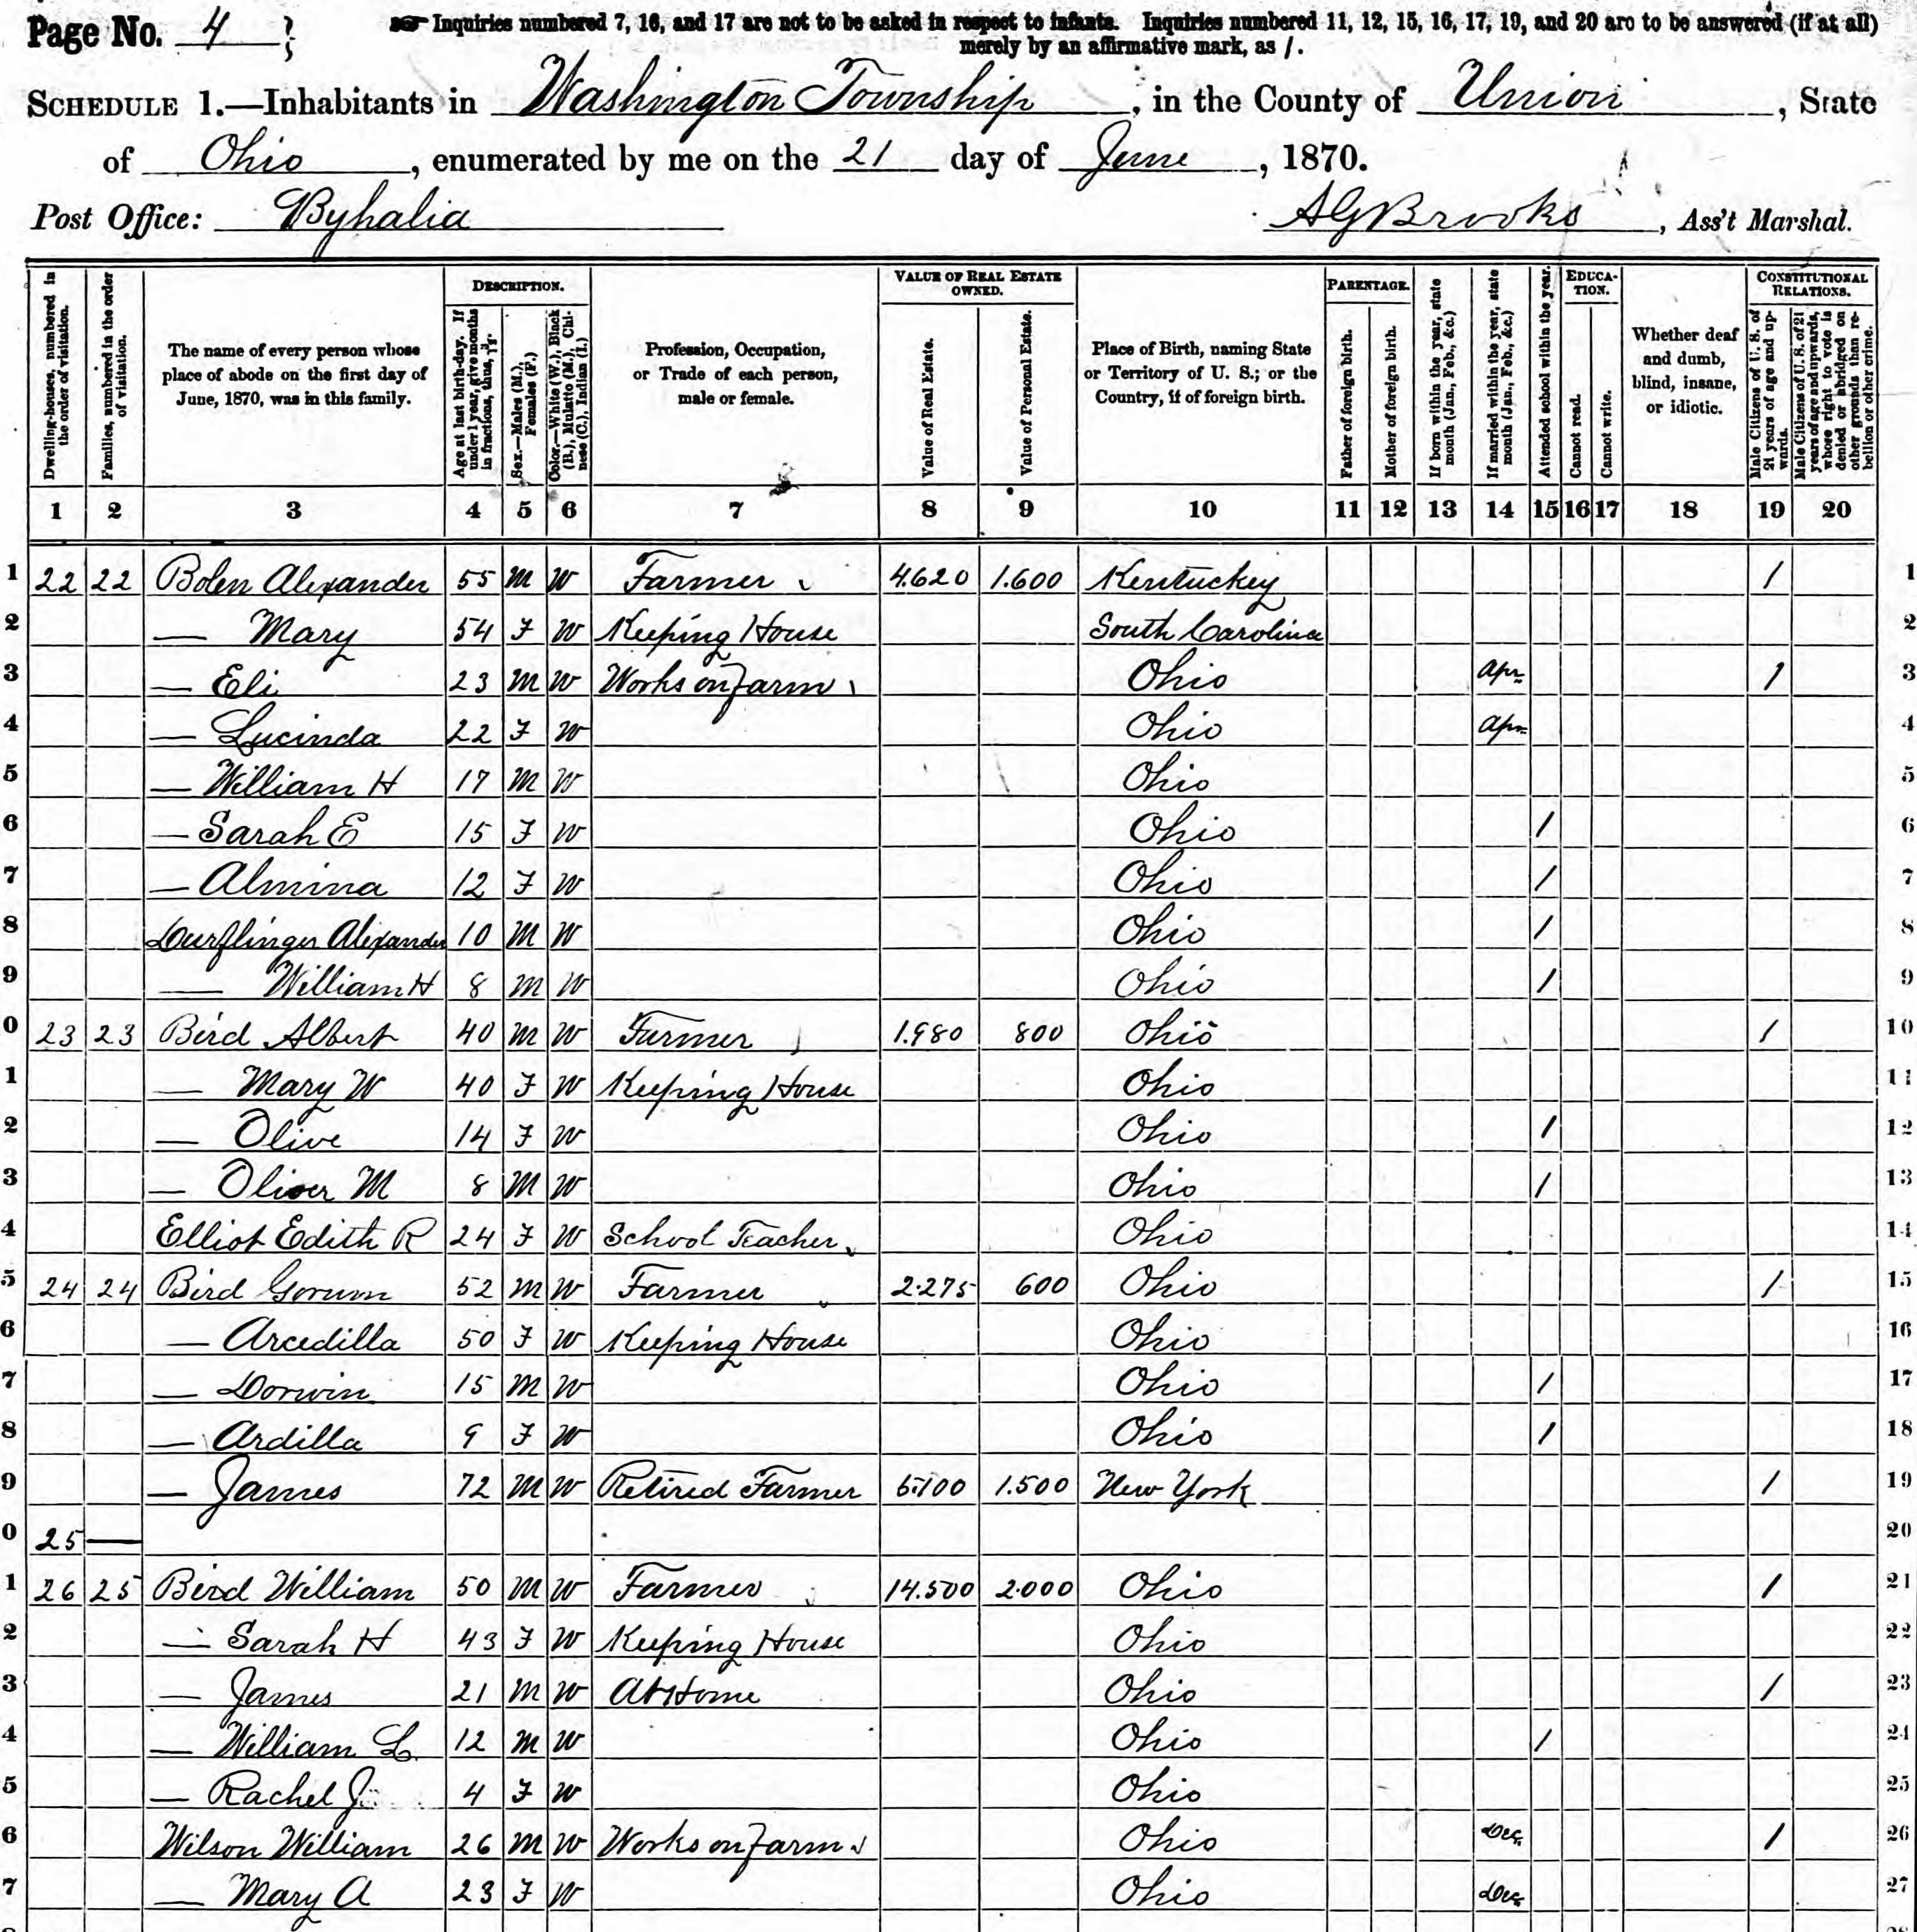 Page No. 4
Inquiries numbered 7, 16, and 17 are not to be asked in respect to infants. Inquiries numbered 11, 12, 15, 16, 17, 19, and 20 are to be answered (if at all)
merely by an affirmative mark, as /.
SCHEDULE 1.—Inhabitants in Washington Township, in the County of Union, State
of Ohio, enumerated by me on the 21 day of June, 1870.
Post Office: Byhalia A G Brooks, Ass't Marshal.
Dwelling-houses, numbered in the order of visitation.
Families, numbered in the order of visitation.
The name of every person whose place of abode on the first day of June, 1870, was in this family.
DESCRIPTION.
Age at last birth-day. If under 1 year, give months in fractions, thus,
Sex.—Males (M.), Females (F.)
Color.—White (W.), Black (B.), Mulatto (M.), Chinese (C.), Indian (I.)
Profession, Occupation, or Trade of each person, male or female.
VALUE OF REAL ESTATE OWNED.
Value of Real Estate.
Value of Personal Estate.
Place of Birth, naming State or Territory of U. S.; or the Country, if of foreign birth.
PARENTAGE.
Father of foreign birth.
Mother of foreign birth.
If born within the year, state month (Jan., Feb., &c.)
If married within the year, state month (Jan., Feb., &c.)
Attended school within the year.
EDUCATION.
Cannot read.
Cannot write.
Whether deaf and dumb, blind, insane, or idiotic.
CONSTITUTIONAL RELATIONS.
Male Citizens of U. S. of 21 years of age and upwards.
Male Citizens of U. S. of 21 years of age and upwards, whose right to vote is denied or abridged on other grounds than rebellion or other crime.
1 2 3 4 5 6 7 8 9 10 11 12 13 14 15 16 17 18 19 20
1 22 22 Bolen Alexander 55 M W Farmer 4.620 1.600 Kentucky / 1
2 — Mary 54 F W Keeping House South Carolina 2
3 — Eli 23 M W Works on Farm Ohio Apr / 3
4 — Lucinda 22 F W Ohio Apr 4
5 — William H 17 M W Ohio 5
6 — Sarah E 15 F W Ohio / 6
7 — Almina 12 F W Ohio / 7
8 Durflinger Alexander 10 M W Ohio / 8
9 — William H 8 M W Ohio / 9
0 23 23 Bird Albert 40 M W Farmer 1.980 800 Ohio / 10
1 — Mary W 40 F W Keeping House Ohio 11
2 — Olive 14 F W Ohio / 12
3 — Oliver M 8 M W Ohio / 13
4 Elliot Edith R 24 F W School Teacher Ohio 14
5 24 24 Bird 52 M W Farmer 2.275 600 Ohio / 15
6 — Arcedilla 50 F W Keeping House Ohio 16
7 — Dorwin 15 M W Ohio / 17
8 — Ardilla 9 F W Ohio / 18
9 — James 72 M W Retired Farmer 1.500 New York / 19
0 25 — 20
1 26 25 Bird William 50 M W Farmer 14.500 2.000 Ohio / 21
2 — Sarah H 43 F W Keeping House Ohio 22
3 — James 21 M W At Home Ohio / 23
4 — William L. 12 M W Ohio / 24
5 — Rachel J. 4 F W Ohio 25
6 Wilson William 26 M W Works on Farm Ohio Dec / 26
7 — Mary A 23 F W Ohio Dec 27